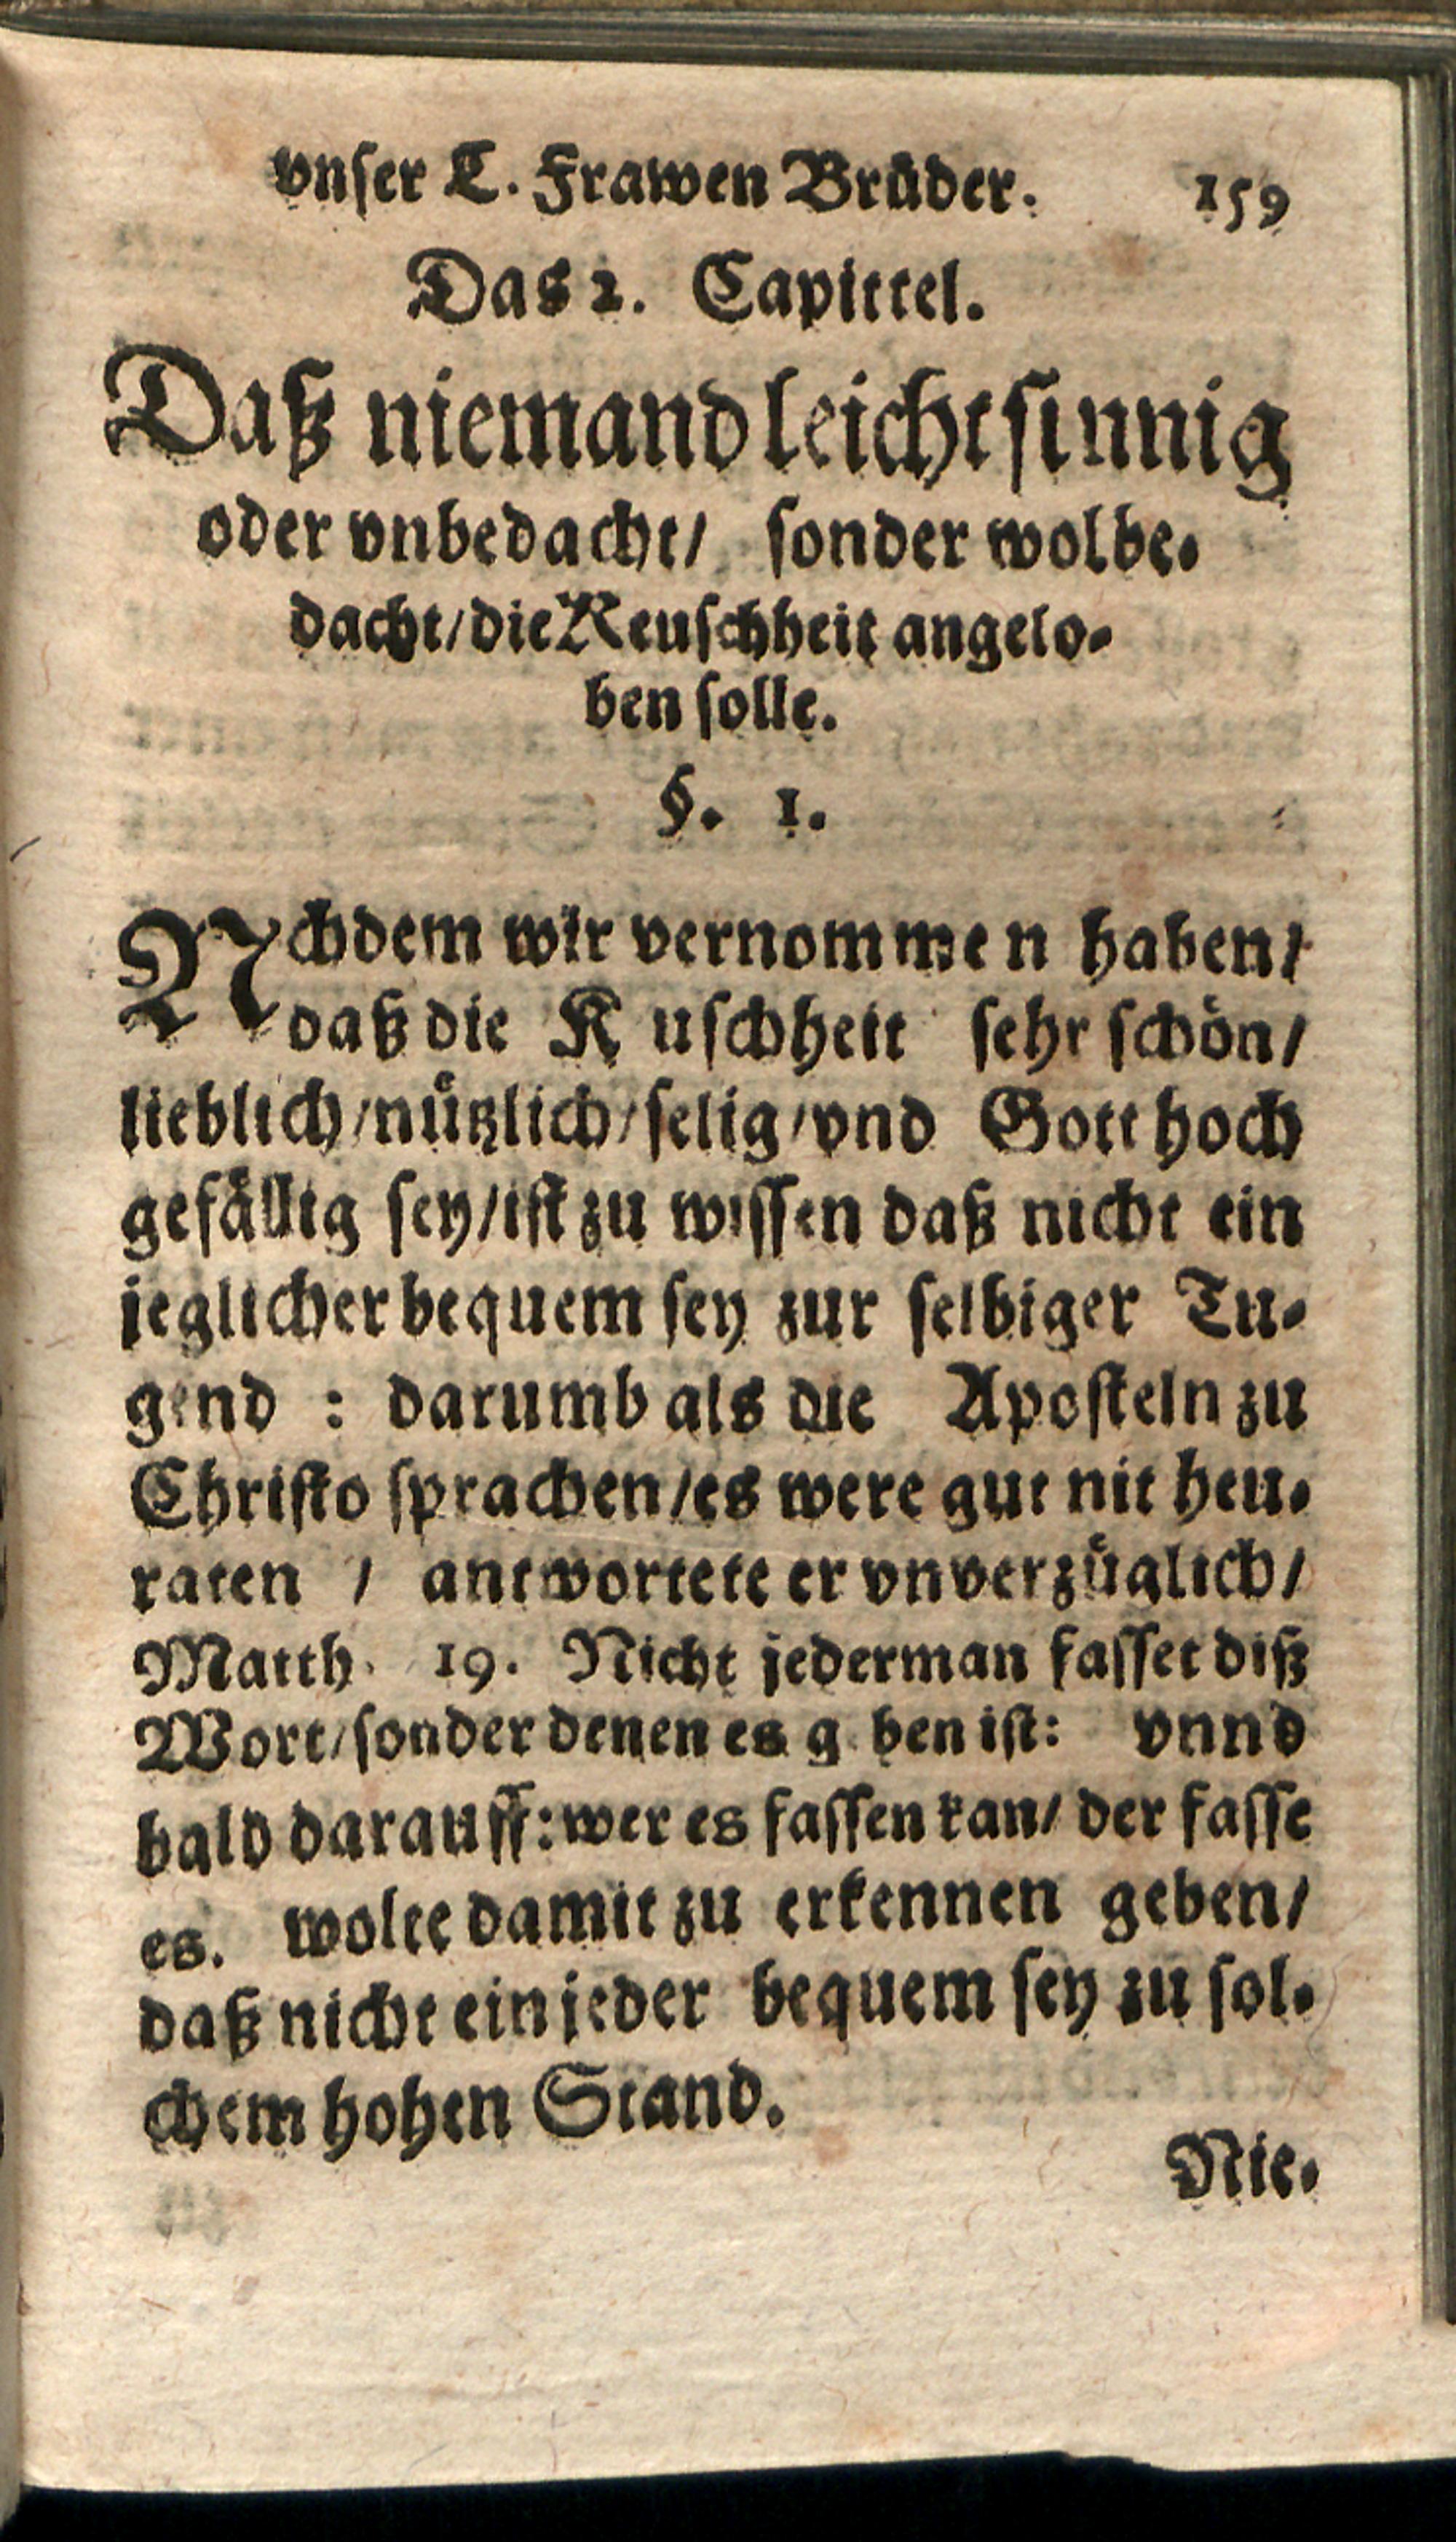 vnser L. Frawen Brüder. 159
Das 2. Capittel.
Daß niemand leichtsinnig
oder vnbedacht/ sonder wolbe-
dacht/die Keuschheit angelo-
ben solle.
§. 1.
Nchdem wir vernommen haben/
daß die K uschheit sehr schön/
lieblich/nützlich/selig/vnd Gott hoch
gefällig sey/ist zu wissen daß nicht ein
jeglicher bequem sey zur selbiger Tu-
gend : darumb als die Aposteln zu
Christo sprachen/es were gut nit heu-
raten / antwortete er vnverzüglich/
Matth. 19. Nicht jederman fasset diß
Wort/sonder denen es g ben ist: vnnd
bald darauff: wer es fassen kan/ der fasse
es. wolte damit zu erkennen geben/
daß nicht ein jeder bequem sey zu sol-
chem hohen Stand.
Nie-